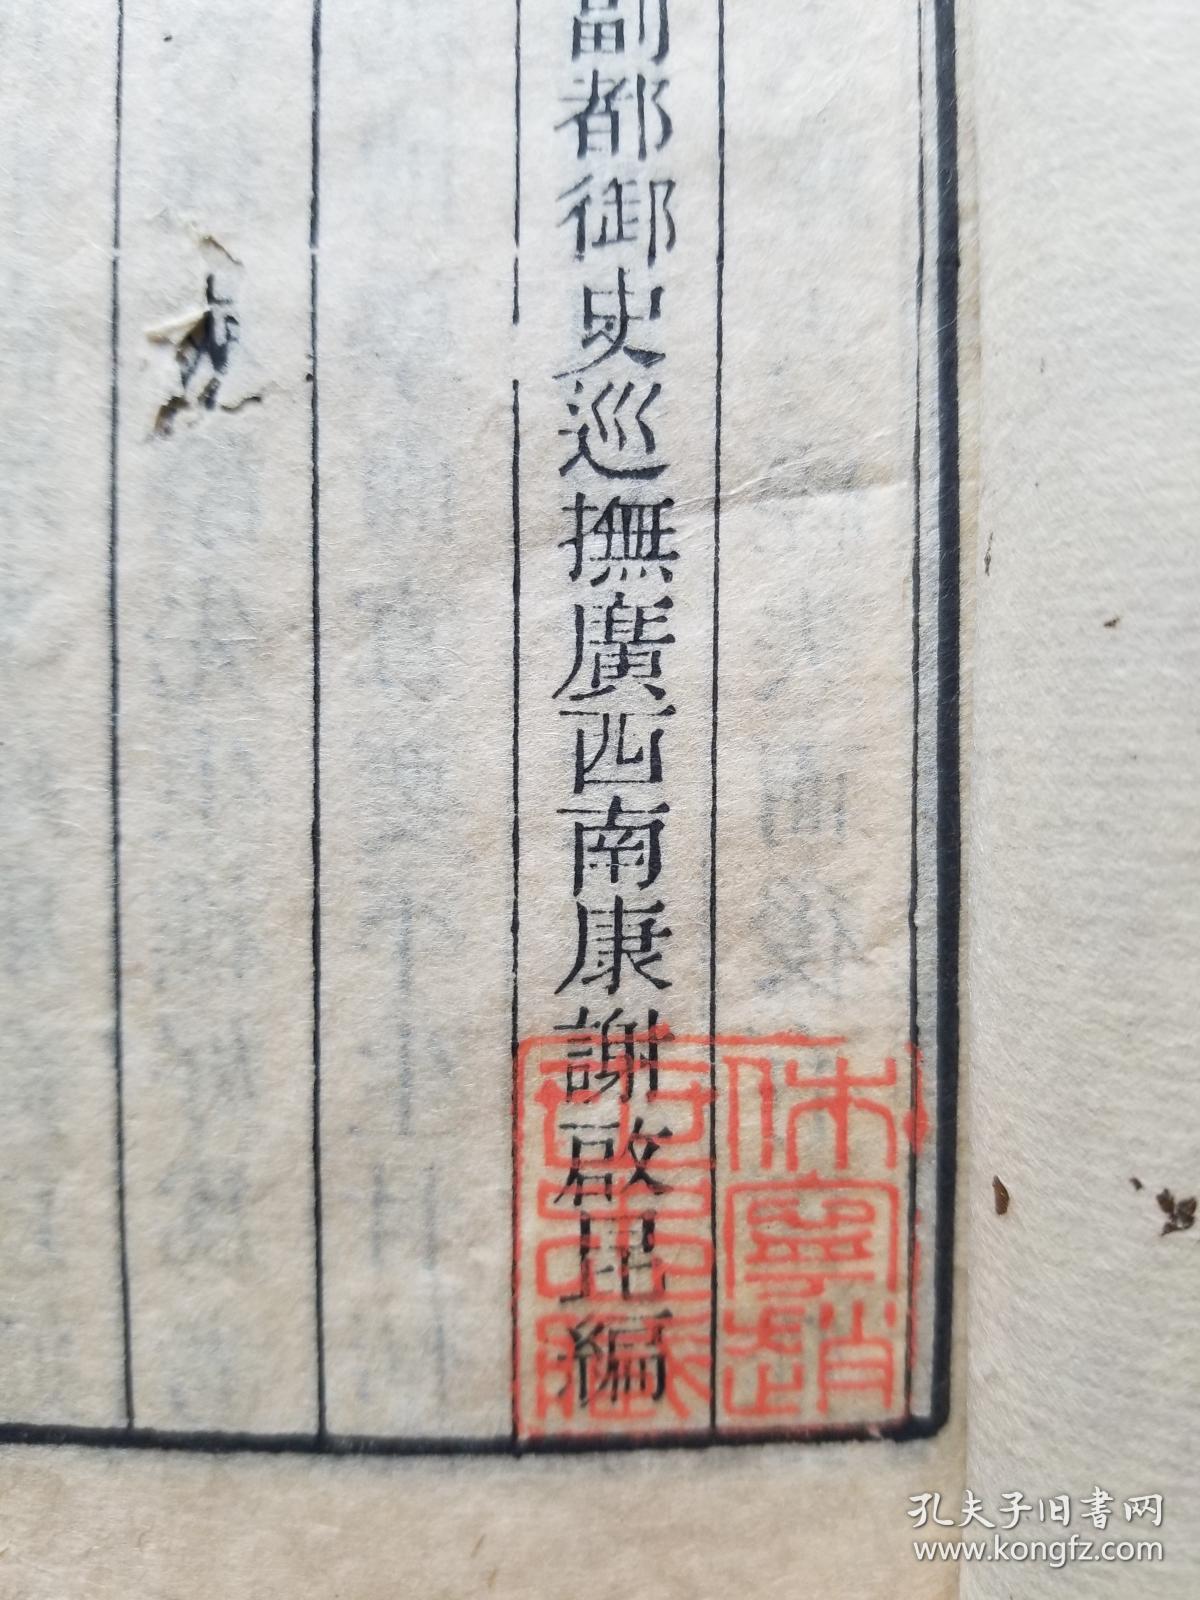 副都御史巡撫廣西南康謝啟昆編
休寧趙
藏
孔夫子旧书网
www.kongfz.com